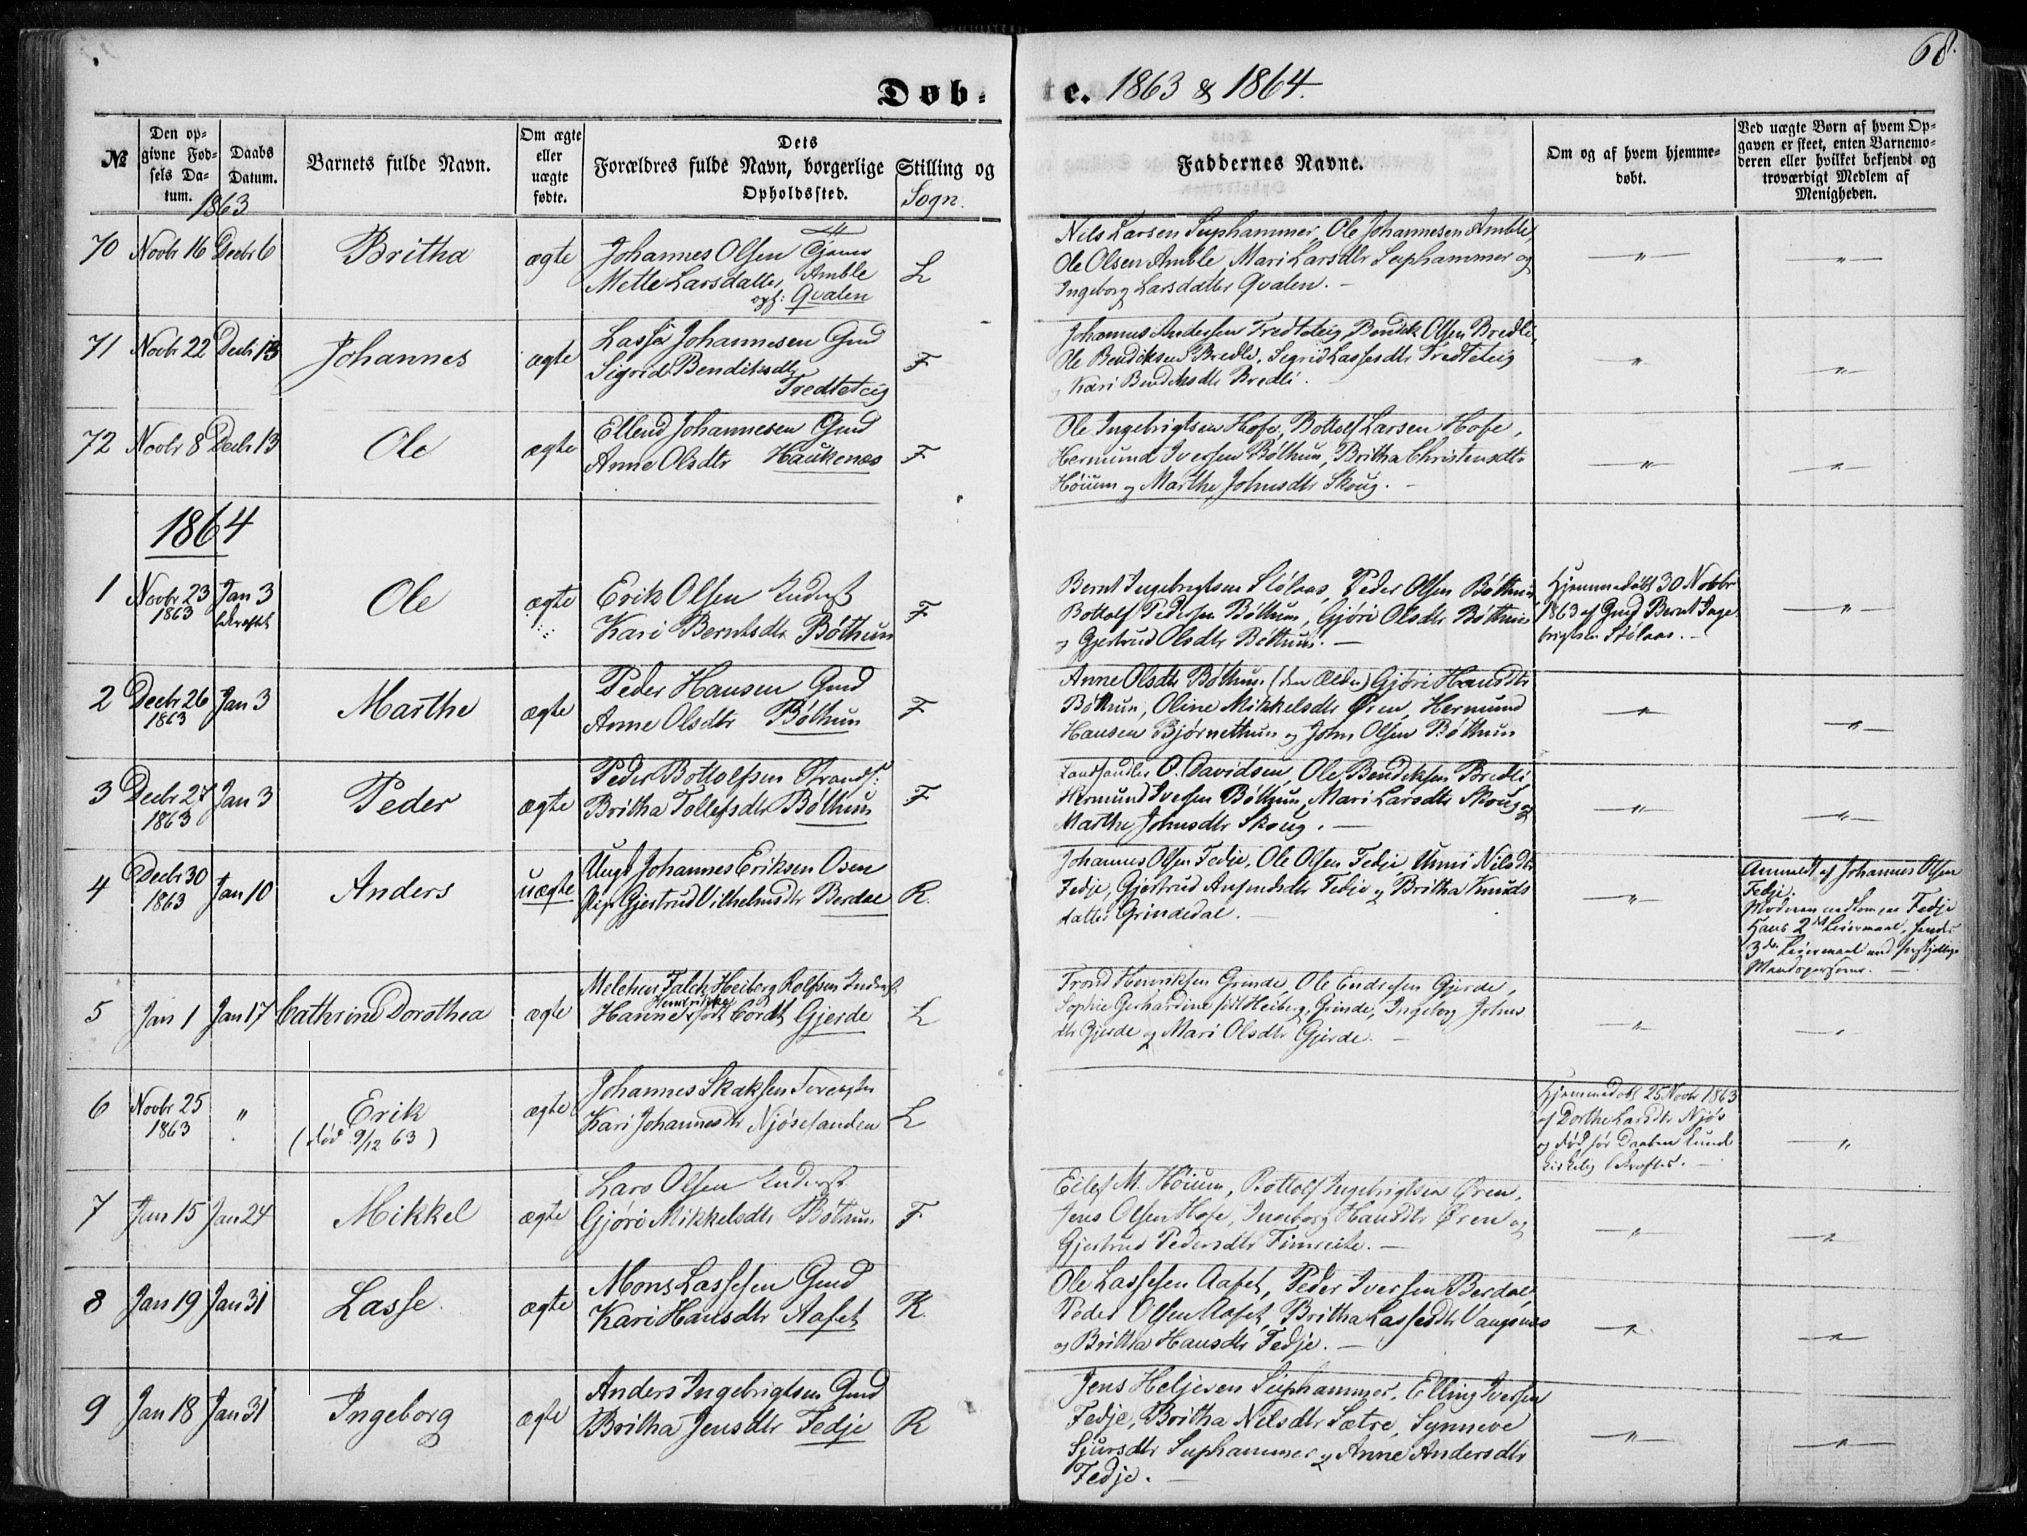 68.
Døb-
te. 1863 & 1864.
№
Den op-
givne Fød-
sels Da-
tum.
Daabs
Datum.
Barnets fulde Navn.
Om ægte
eller
uægte
fødte.
Dets
Forældres fulde Navn, borgerlige Stilling og
Opholdssted.
Sogn.
Faddernes Navne.
Om og af hvem hjemme-
døbt.
Ved uægte Børn af hvem Op-
gaven er skeet, enten Barnemo-
deren eller hvilket bekjendt og
troværdigt Medlem af
Menigheden.
1863
70 Novbr 16 Decbr 6 Britha ægte
Johannes Olsen
Mette Larsdatter Amble
opf: Qvalen
L
Nils Larsen Suphammer, Ole Johannesen Amble,
Ole Olsen Amble Mari Larsdtr Suphammer og
Ingeborg Larsdatter Qvalen. —
—"— —"—
71 Novbr 22 Decbr 13 Johannes ægte
Lasse Johannesen Gmd
Sigrid Bendiksdtr
Tredteteig
F
Johannes Andersen Tredteteig, Bendik Olsen Bredli,
Ole Bendiksen Bredli, Sigrid Lassesdtr Tredteteig
og Kari Bendiksdtr Bredli.
—"— —"—
72 Novbr 8 Decbr 13 Ole ægte
Ellend Johannesen Gmd
Anne Olsdtr Haukenæs
F
Ole Ingebrigtsen Hofe, Bottolf Larsen Hofe,
Hermund Iversen Bøthun, Britha Christensdtr
Høium og Marthe Johnsdtr Skoug. —
—"— —"—
1864
1 Novbr 23 1863 Jan 3 bekræftet Ole ægte
Erik Olsen Inderst
Kari Berntsdtr Bøthun
F
Bernt Ingebrigtsen Stølaas, Peder Olsen Bøthun
Bottolf Pedersen Bøthun, Gjøri Olsdtr Bøthun
og Gjertrud Olsdtr Bøthun. —
Hjemmedøbt 30 Novbr
1863 af Gmd Bernt Inge
brigtsen Stølaas. —
—"—
2 Decbr 26 1863 Jan 3 Marthe ægte
Peder Hansen Gmd
Anne Olsdtr Bøthun
F
Anne Olsdtr Bøthun (den Ældre) Gjøri Hansdtr
Bøthun, Oline Mikkelsdtr Øren, Hermund
Hansen Bjørnethun og John Olsen Bøthun
—"— —"—
3 Decbr 27 1863 Jan 3 Peder ægte
Peder Bottolfsen Strands:
Britha Tollefsdtr Bøthun
F
Landhandler O. Davidsen, Ole Bendiksen Bredli
Hermund Iversen Bøthun, Mari Larsdtr Skoug og
Marthe Johnsdtr Skoug. —
—"— —"—
4 Decbr 30 1863 Jan 10 Anders uægte
Ungk Johannes Eriksen Osen
Pige Gjertrud Vilhelmsdtr Berdal
R.
Johannes Olsen Fedje, Ole Olsen Fedje, Unni Nilsdtr
Fedje, Gjertrud Amundsdtr Fedje og Britha Knuds
datter Grindedal. —
—"—
Anmeldt af Johannes Olsen
Fedje.
Moderen Fedje
Hans 2det Leiermaal, hendes
3die Leiermaal med forskjellige
Mandspersoner. —
5 Jan 1 Jan 17 Cathrine Dorothea ægte
Melchior Falck Heiberg Rolfsen Inderst
Hanne Henrikke født Cordt Gjerde
L
Trond Henriksen Grinde, Ole Endresen Gjerde,
Sophie Gerhardine født Heiberg, Grinde, Ingeborg Johns
dtr Gjerde og Mari Olsdtr Gjerde. —
—"— —"—
6 Novbr 25 1863 " Erik
(død 9/12 63)
ægte
Johannes Skaksen
Kari Johannesdtr Njøsesanden
L
Hjemmedøbt 25 Novbr 1863
af Dorthe Larsdtr Njøs
og død før Daaben kunde
kirkelig bekræftes. —
—"—
7 Jan 15 Jan 24 Mikkel ægte
Lars Olsen Inderst
Gjøri Mikkelsdtr Bøthun
F
Eilef M. Høium, Bottolf Ingebrigtsen Øren,
Jens Olsen Hofe, Ingeborg Hansdtr Øren og
Gjertrud Pedersdtr Fimreite. —
—"— —"—
8 Jan 19 Jan 31 Lasse ægte
Mons Lassesen Gmd
Kari Hansdtr Aafet
R.
Ole Lassesen Aafet, Peder Iversen Berdal,
Peder Olsen Aafet, Britha Lassesdtr Vangsnæs
og Britha Hansdtr Fedje. —
—"— —"—
9 Jan 18 Jan 31 Ingeborg ægte
Anders Ingebrigtsen Gmd
Britha Jensdtr Fedje
R
Jens Heljesen Suphammer, Elling Iversen
Fedje, Britha Nilsdtr Sætre, Synneve
Sjursdtr Suphammer og Anne Andersdtr
Fedje. —
—"— —"—